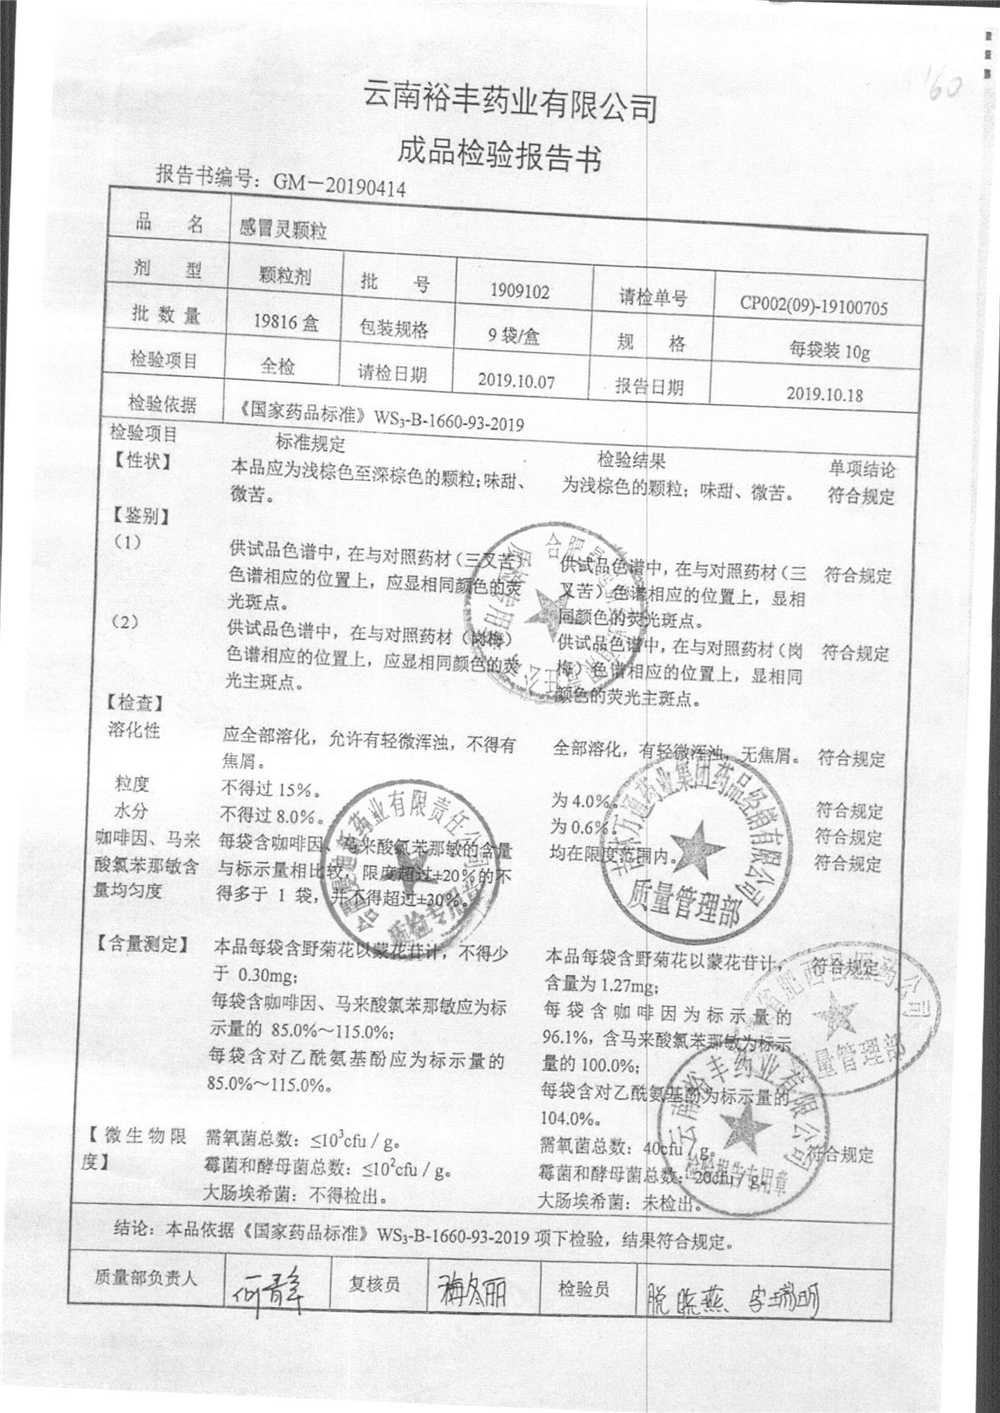 160
云南裕丰药业有限公司
成品检验报告书
报告书编号：GM－20190414
品 名 感冒灵颗粒
剂 型 颗粒剂 批 号 1909102 请检单号 CP002(09)-19100705
批 数 量 19816 盒 包装规格 9 袋/盒 规 格 每袋装 10g
检验项目 全检 请检日期 2019.10.07 报告日期 2019.10.18
检验依据 《国家药品标准》WS₃-B-1660-93-2019
检验项目 标准规定 检验结果 单项结论
【性状】 本品应为浅棕色至深棕色的颗粒；味甜、 为浅棕色的颗粒；味甜、微苦。 符合规定
微苦。
【鉴别】
（1） 供试品色谱中，在与对照药材（三叉苦） 供试品色谱中，在与对照药材（三 符合规定
色谱相应的位置上，应显相同颜色的荧 叉苦）色谱相应的位置上，显相
光斑点。 同颜色的荧光斑点。
（2） 供试品色谱中，在与对照药材（岗梅） 供试品色谱中，在与对照药材（岗 符合规定
色谱相应的位置上，应显相同颜色的荧 梅）色谱相应的位置上，显相同
光主斑点。 颜色的荧光主斑点。
【检查】
溶化性 应全部溶化，允许有轻微浑浊，不得有 全部溶化，有轻微浑浊，无焦屑。 符合规定
焦屑。
粒度 不得过 15%。 为 4.0%。 符合规定
水分 不得过 8.0%。 为 0.6%。 符合规定
咖啡因、马来 每袋含咖啡因、马来酸氯苯那敏的含量 均在限度范围内。 符合规定
酸氯苯那敏含 与标示量相比较，限度超过±20%的不
量均匀度 得多于 1 袋，并不得超过±30%。
【含量测定】 本品每袋含野菊花以蒙花苷计，不得少 本品每袋含野菊花以蒙花苷计， 符合规定
于 0.30mg； 含量为 1.27mg；
每袋含咖啡因、马来酸氯苯那敏应为标 每袋含咖啡因为标示量的
示量的 85.0%～115.0%； 96.1%，含马来酸氯苯那敏为标示
量的 100.0%；
每袋含对乙酰氨基酚应为标示量的 每袋含对乙酰氨基酚为标示量的
85.0%～115.0%。 104.0%。
【微生物限 需氧菌总数：≤10³cfu / g。 需氧菌总数：40cfu / g。 符合规定
度】 霉菌和酵母菌总数：≤10²cfu / g。 霉菌和酵母菌总数：20cfu / g。
大肠埃希菌：不得检出。 大肠埃希菌：未检出。
结论：本品依据《国家药品标准》WS₃-B-1660-93-2019 项下检验，结果符合规定。
质量部负责人 何青羊 复核员 梅冬丽 检验员 脱晓燕 字瑞明
质量管理部
云南裕丰药业有限公司
检验报告专用章